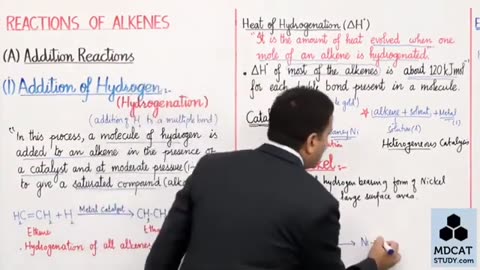 REACTIONS OF ALKENES
(A) Addition Reactions
(1) Addition of Hydrogen:-
(Hydrogenation)
(addition of H to a multiple bond)
"In this process, a molecule of hydrogen is
added to an alkene in the presence of
a catalyst and at moderate pressure (1-
to give a saturated compound (alka
H₂C=CH₂ + H₂ Metal Catalyst CH-CH
Ethene Eth
. Hydrogenation of all alkenes
Heat of Hydrogenation (ΔH°)
"It is the amount of heat evolved when one
mole of an alkene is hydrogenated."
• ΔH° of most of the alkenes is about 120 kJ mol⁻¹
for each double bond present in a molecule.
Cata
* (alkene + solvent) + Metal
solution
Heterogeneous Catalysis
kel:-
hydrogen bearing form of Nickel
large surface area.
Ni
MDCAT
STUDY.com